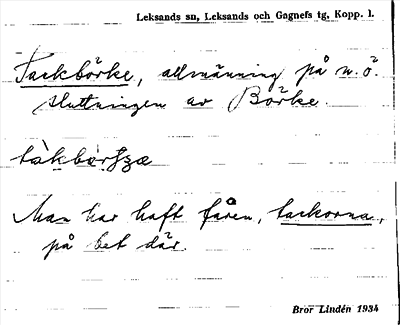 Leksands sn, Leksands och Gagnefs tg, Kopp. l.
Tackbörke, allmänning på n.ö.
sluttningen av Börke.
Man har haft fåren, tackorna,
på bet där.
Bror Lindén 1934